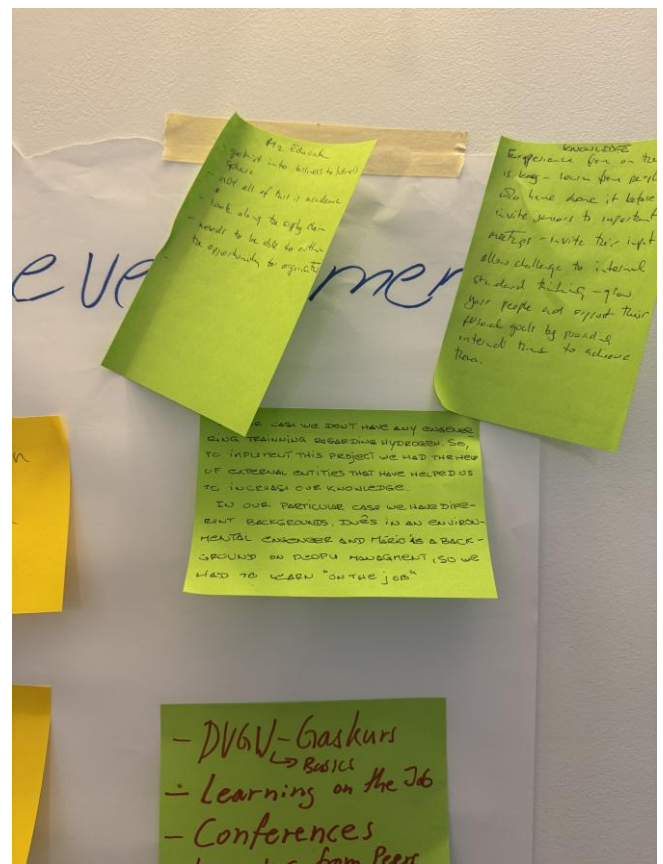 H2 Educate
into business to
sphere
- not all of this is academic
- look along to apply
- needs to be able to
the opportunity for
KNOWLEDGE
Experience from on the
is key - learn from people
who have done it before
invite seniors to important
meetings - invite their input
allow challenge to internal
standard thinking - grow
your people and support their
goals by providing
internal time to achieve
them.
eve
men
CASE WE DON'T HAVE ANY ENGENEE
RING TRAINNING REGARDING HYDROGEN. SO,
TO IMPLEMENT THIS PROJECT WE HAD THE HELP
OF EXTERNAL ENTITIES THAT HAVE HELPED US
TO INCREASE OUR KNOWLEDGE.
IN OUR PARTICULAR CASE WE HAVE DIFE-
RENT BACKGROUNDS. INÊS IN AN ENVIRON-
MENTAL ENGENEER AND MÁRIO AS A BACK-
GROUND ON PEOPLE MANAGMENT, SO WE
HAD TO LEARN "ON THE JOB"
- DVGW-Gaskurs
↳ Basics
- Learning on the Job
- Conferences
from Peers